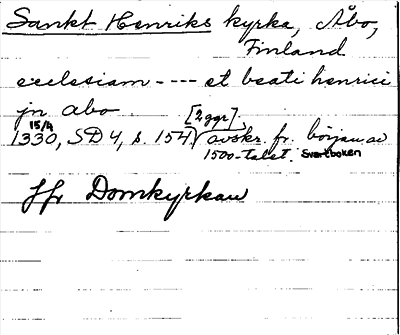 Sankt Henriks kyrka, Åbo,
Finland
ecclesiam - - - - et beati henrici
jn abo [2 ggr]
15/4
1330, SD 4, s. 154, avskr. fr. början av
1500-talet. Svartboken
Jfr Domkyrkan